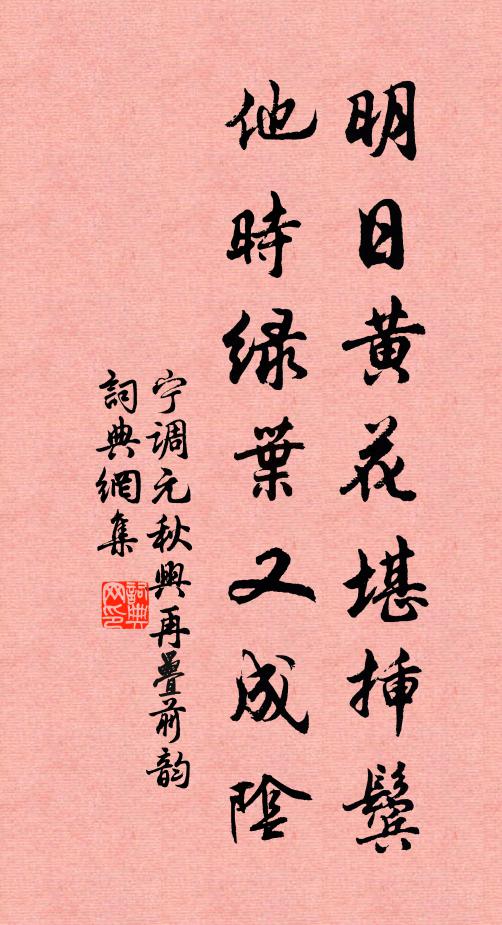 明日黄花堪挿鬓
他時緑葉又成陰
宁调元秋興再疊前韵
詞典網集
詞典网印